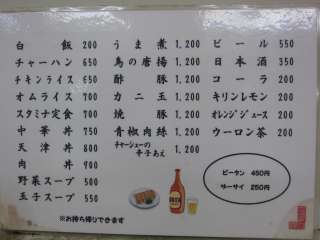 白飯 200
チャーハン 650
チキンライス 650
オムライス 700
スタミナ定食 700
中華丼 750
天津丼 700
肉丼 700
野菜スープ 500
玉子スープ 550
うま煮 1,200
鳥の唐揚 1,200
酢豚 1,200
カニ玉 1,200
焼豚 1,200
青椒肉絲 1,200
チャーシューの辛子あえ 1,200
ビール 550
日本酒 350
コーラ 200
キリンレモン 200
オレンジジュース 200
ウーロン茶 200
ピータン 450円
ザーサイ 250円
※お持ち帰りできます